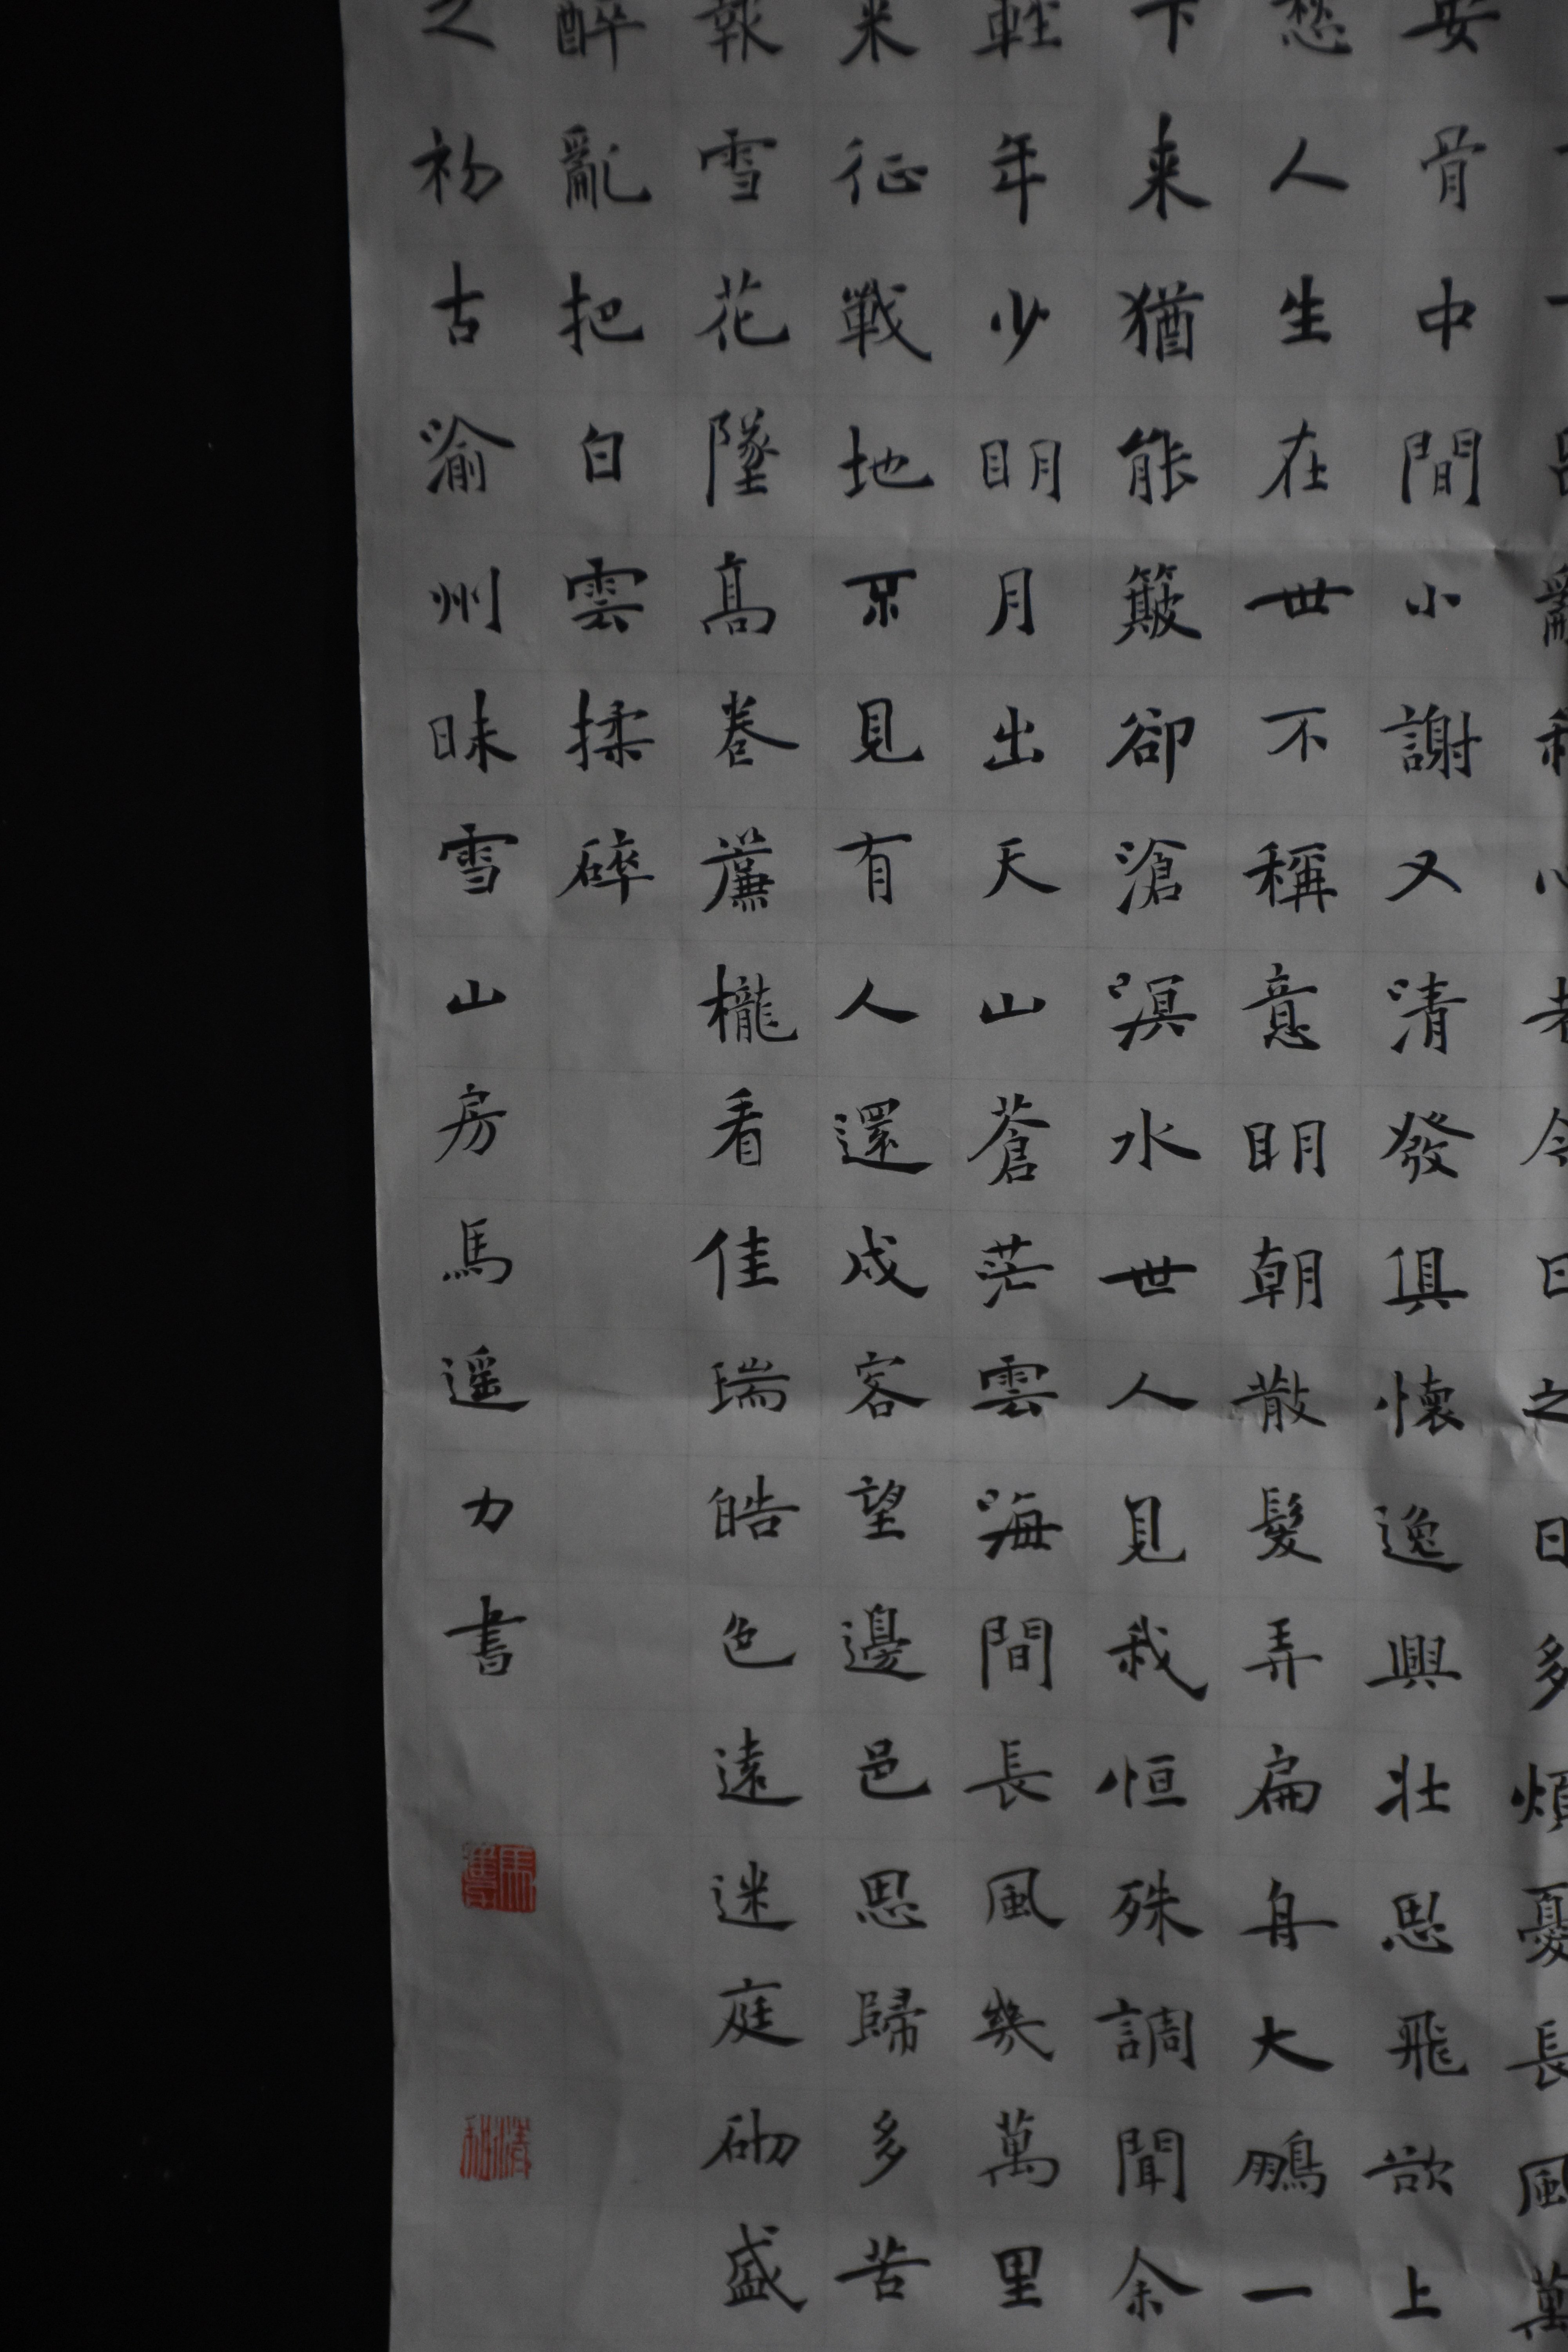 留亂我心者今日之日多煩憂長風萬
安骨中間小謝又清發俱懷逸興壯思飛欲上
愁人生在世不稱意明朝散髮弄扁舟大鵬一
下来猶能簸卻滄溟水世人見我恒殊調聞余
輕年少明月出天山蒼茫雲海間長風幾萬里
来征戰地不見有人還戍客望邊邑思歸多苦
報雪花墜髙卷簾櫳看佳瑞皓色遠迷庭砌盛
醉亂把白雲揉碎
之初古渝州昧雪山房馬遥力書